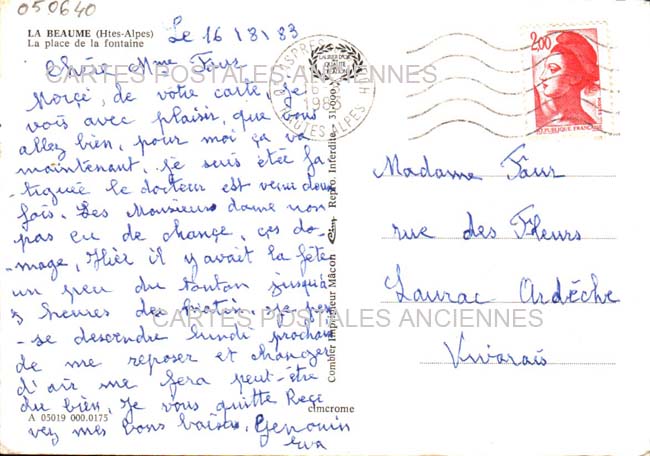 050640
LA BEAUME (Htes-Alpes)
La place de la fontaine
Le 16/8/83
Chère Mme Faur
Merçi, de votre carte, je
vois avec plaisir, que vous
allez bien, pour moi ça va
maintenant, je suis étée fa-
tiguée le docteur est venu deux
fois. Les Monsieurs dame non
pas eu de chançe, ces do-
-mage, Hièr il y avait la fête
un peu du tonton jusqu'à
3 heures du matin. je pen-
-se descendre lundi prochain
de me reposer et changer
d'air me fera peut-être
du bien, je vous quitte Reçe
vez mes bons baisers.
Eva
A 05019 000.0175
cimcrome
Combier Imprimeur Mâcon Cim Repro. Interdite. 31.000
ASPRES
1983
HTES ALPES
2,00
REPUBLIQUE FRANÇAISE
Madame Faur
rue des Fleurs
Laurac Ardèche
Vivarais
CARTES POSTALES ANCIENNES
CARTES POSTALES ANCIENNES